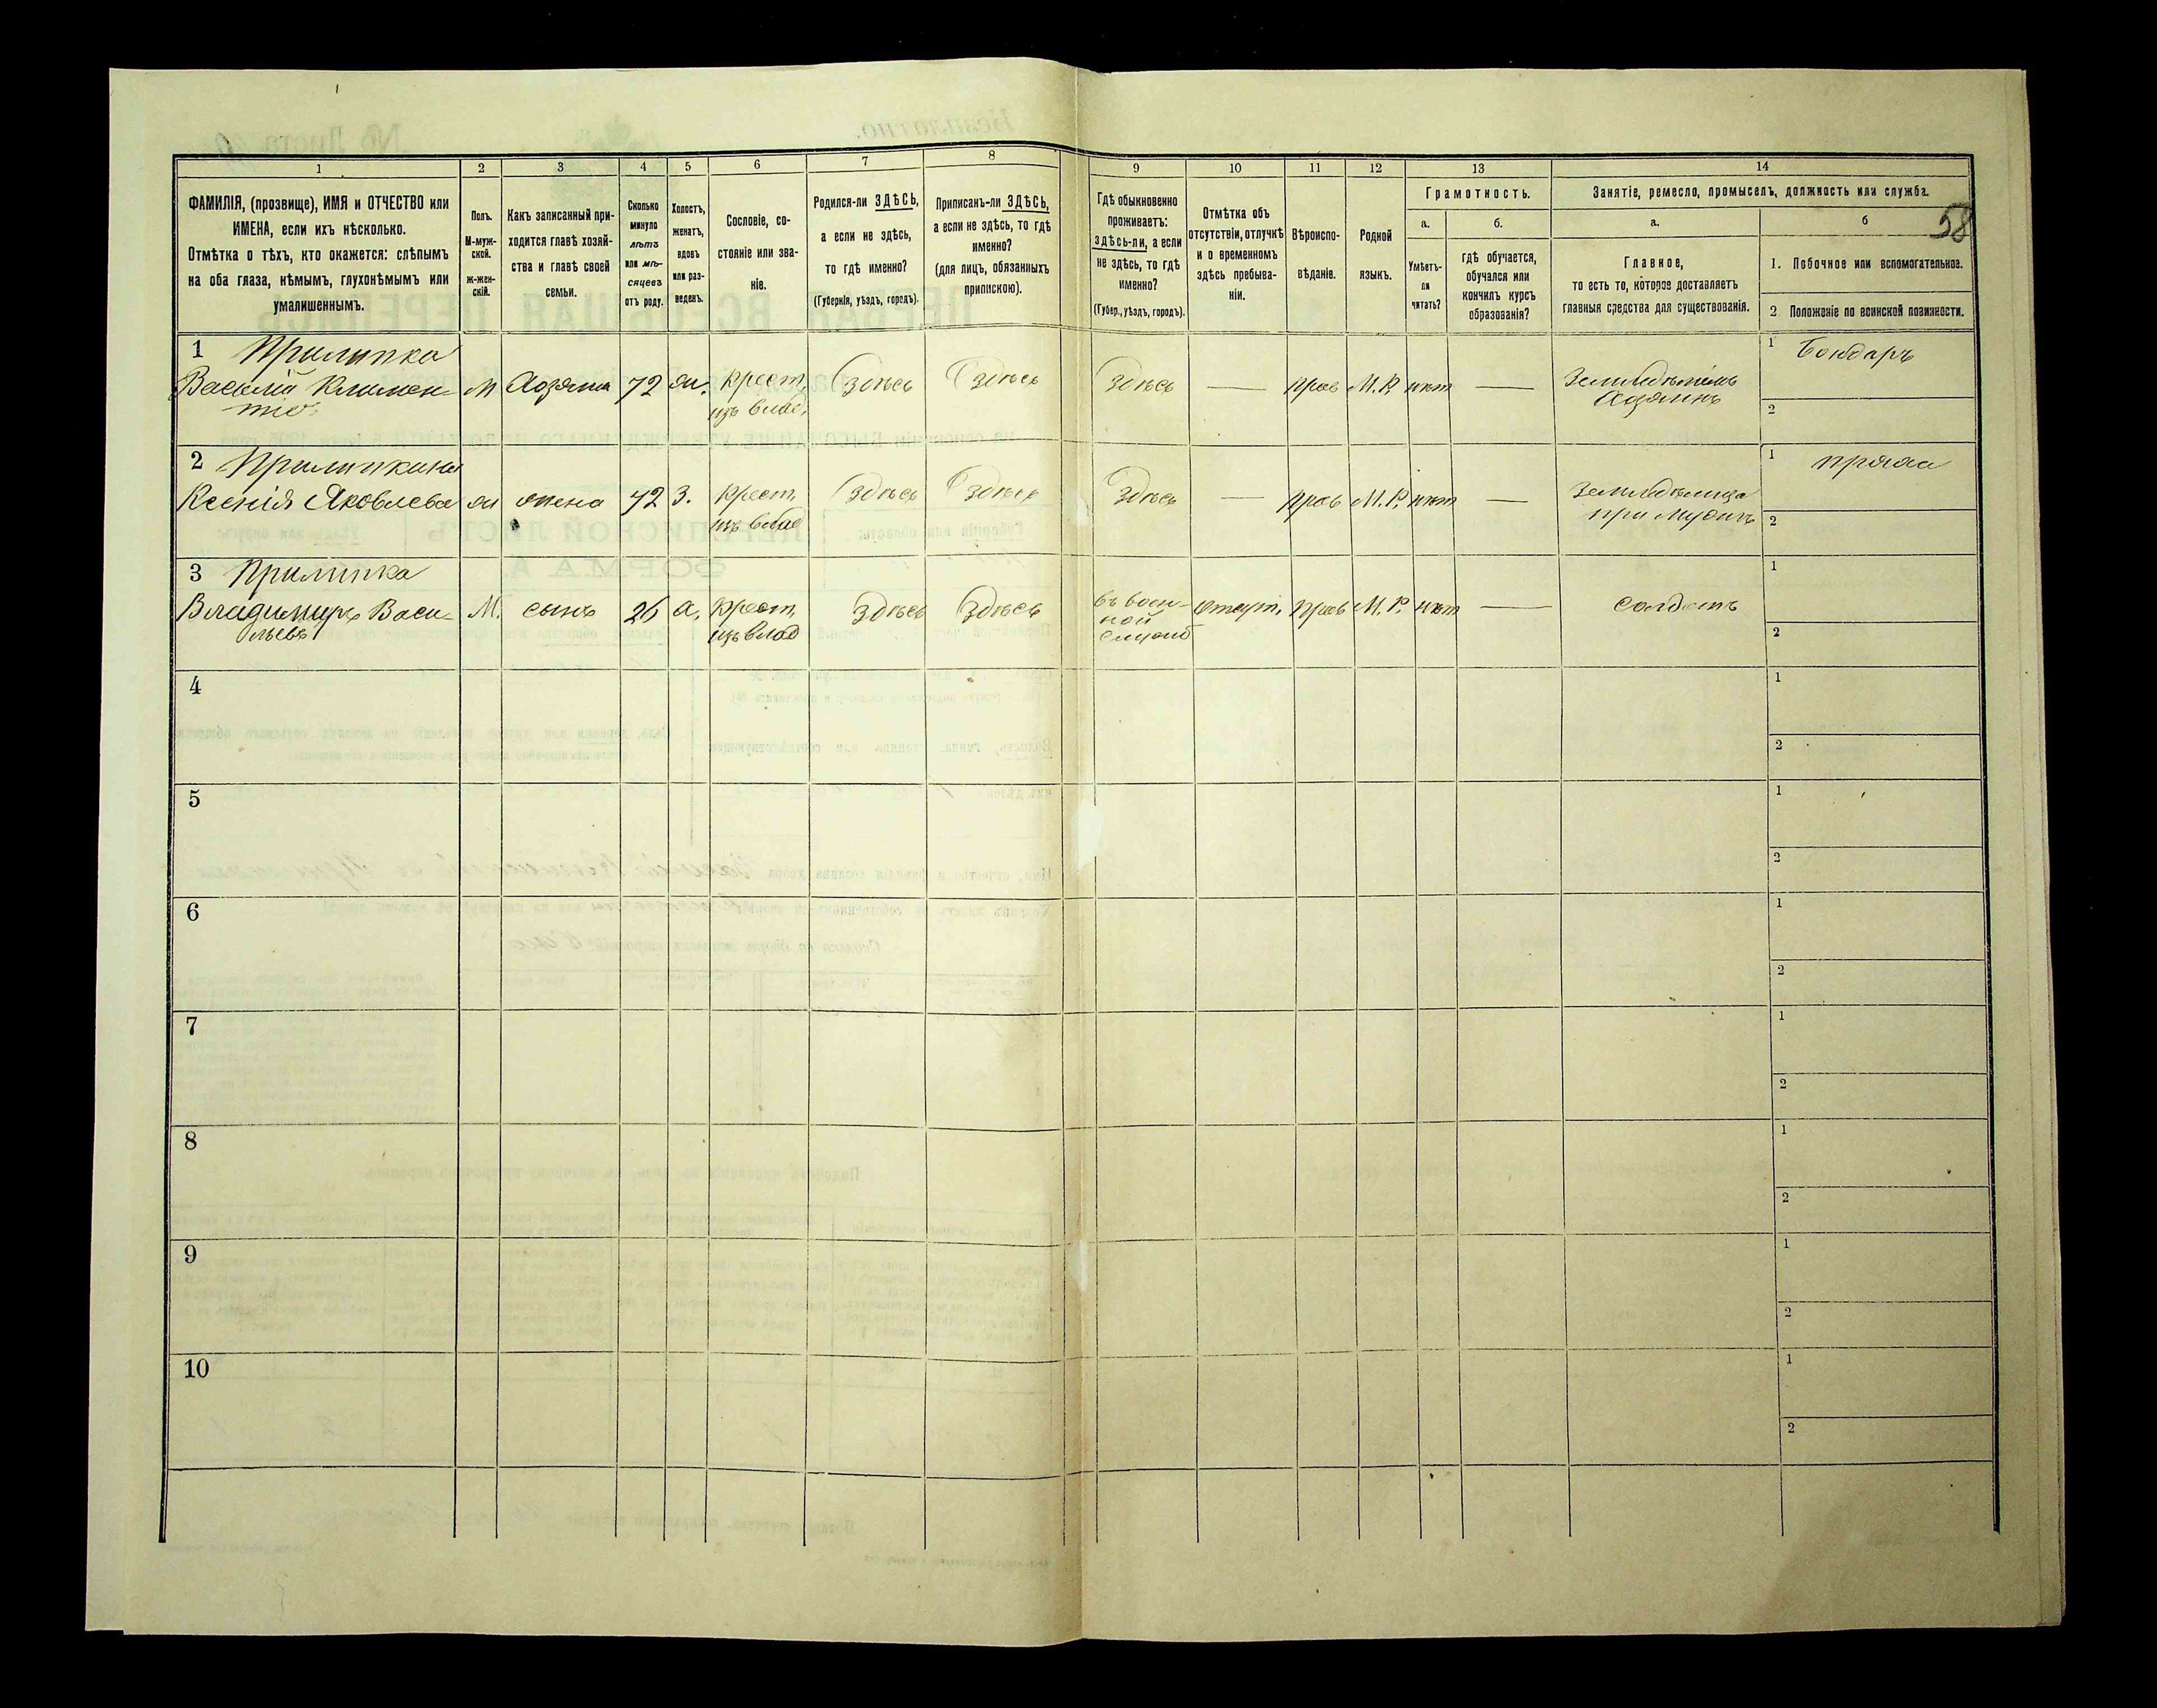 1
2
3
4
5
6
7
8
9
10
11
12
13
14
ФАМИЛІЯ, (прозвище), ИМЯ и ОТЧЕСТВО или
ИМЕНА, если ихъ нѣсколько.
Отмѣтка о тѣхъ, кто окажется: слѣпымъ
на оба глаза, нѣмымъ, глухонѣмымъ или
умалишеннымъ.
Полъ.
М-муж-
ской.
ж-жен-
скій.
Какъ записанный при-
ходится главѣ хозяй-
ства и главѣ своей
семьи.
Сколько
минуло
лѣтъ
или мѣ-
сяцевъ
отъ роду.
Холостъ,
женатъ,
вдовъ
или раз-
веденъ.
Сословіе, со-
стояніе или зва-
ніе.
Родился-ли ЗДѢСЬ,
а если не здѣсь,
то гдѣ именно?
(Губернія, уѣздъ, городъ).
Приписанъ-ли ЗДѢСЬ,
а если не здѣсь, то гдѣ
именно?
(для лицъ, обязанныхъ
припискою).
Гдѣ обыкновенно
проживаетъ:
здѣсь-ли, а если
не здѣсь, то гдѣ
именно?
(Губер., уѣздъ, городъ).
Отмѣтка объ
отсутствіи, отлучкѣ
и о временномъ
здѣсь пребыва-
ніи.
Вѣроиспо-
вѣданіе.
Родной
языкъ.
Грамотность.
а.
Умѣетъ-
ли
читать?
б.
гдѣ обучается,
обучался или
кончилъ курсъ
образованія?
Занятіе, ремесло, промыселъ, должность или служба.
а.
Главное,
то есть то, которое доставляетъ
главныя средства для существованія.
б
58
1. Побочное или вспомогательное.
2 Положеніе по воинской повинности.
1 Прилипка
Василій Климен-
тіев
м Хозяинъ 72 ж. крест, здѣсь здѣсь здѣсь — прав М.Р. нѣт — Земледѣлецъ
изъ влад,
Хозяинъ
1 Бондаръ
2
2 Прилипкина
Ксенія Яковлева ж жена 72 з. крест, здѣсь здѣсь здѣсь — прав М.Р. нѣт — Земледѣлица
изъ влад
при мужѣ
1 пряха
2
3 Прилипка
Владимиръ Васи-
льевъ
М. сынъ 26 х. крест, здѣсь здѣсь въ воен-
ной
службѣ
изъ влад
отсут. прав М.Р. нѣт — солдатъ
1
2
4
1
2
5
1
2
6
1
2
7
1
2
8
1
2
9
1
2
10
1
2